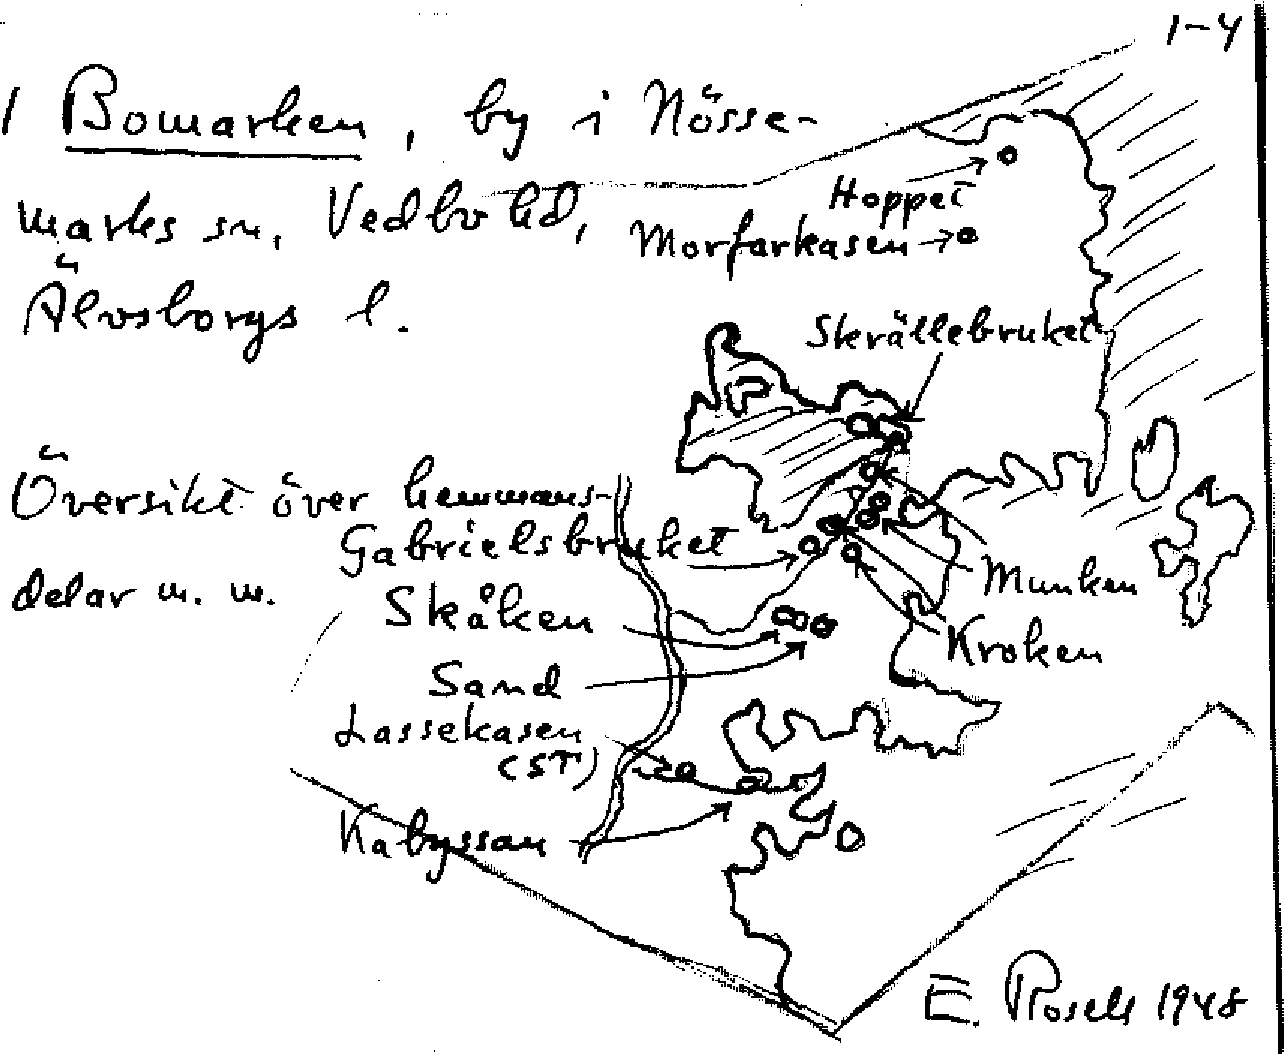 1-4
1 Bomarken, by i Nösse-
marks sn, Vedbo hd,
Älvsborgs l.
Hoppet
Morfarkasen
Skrällebruket
Översikt över hemmans-
delar m. m.
Gabrielsbruket
Skåken
Munken
Kroken
Sand
Lassekasen
(ST)
Kabyssan
E. Rosell 1948